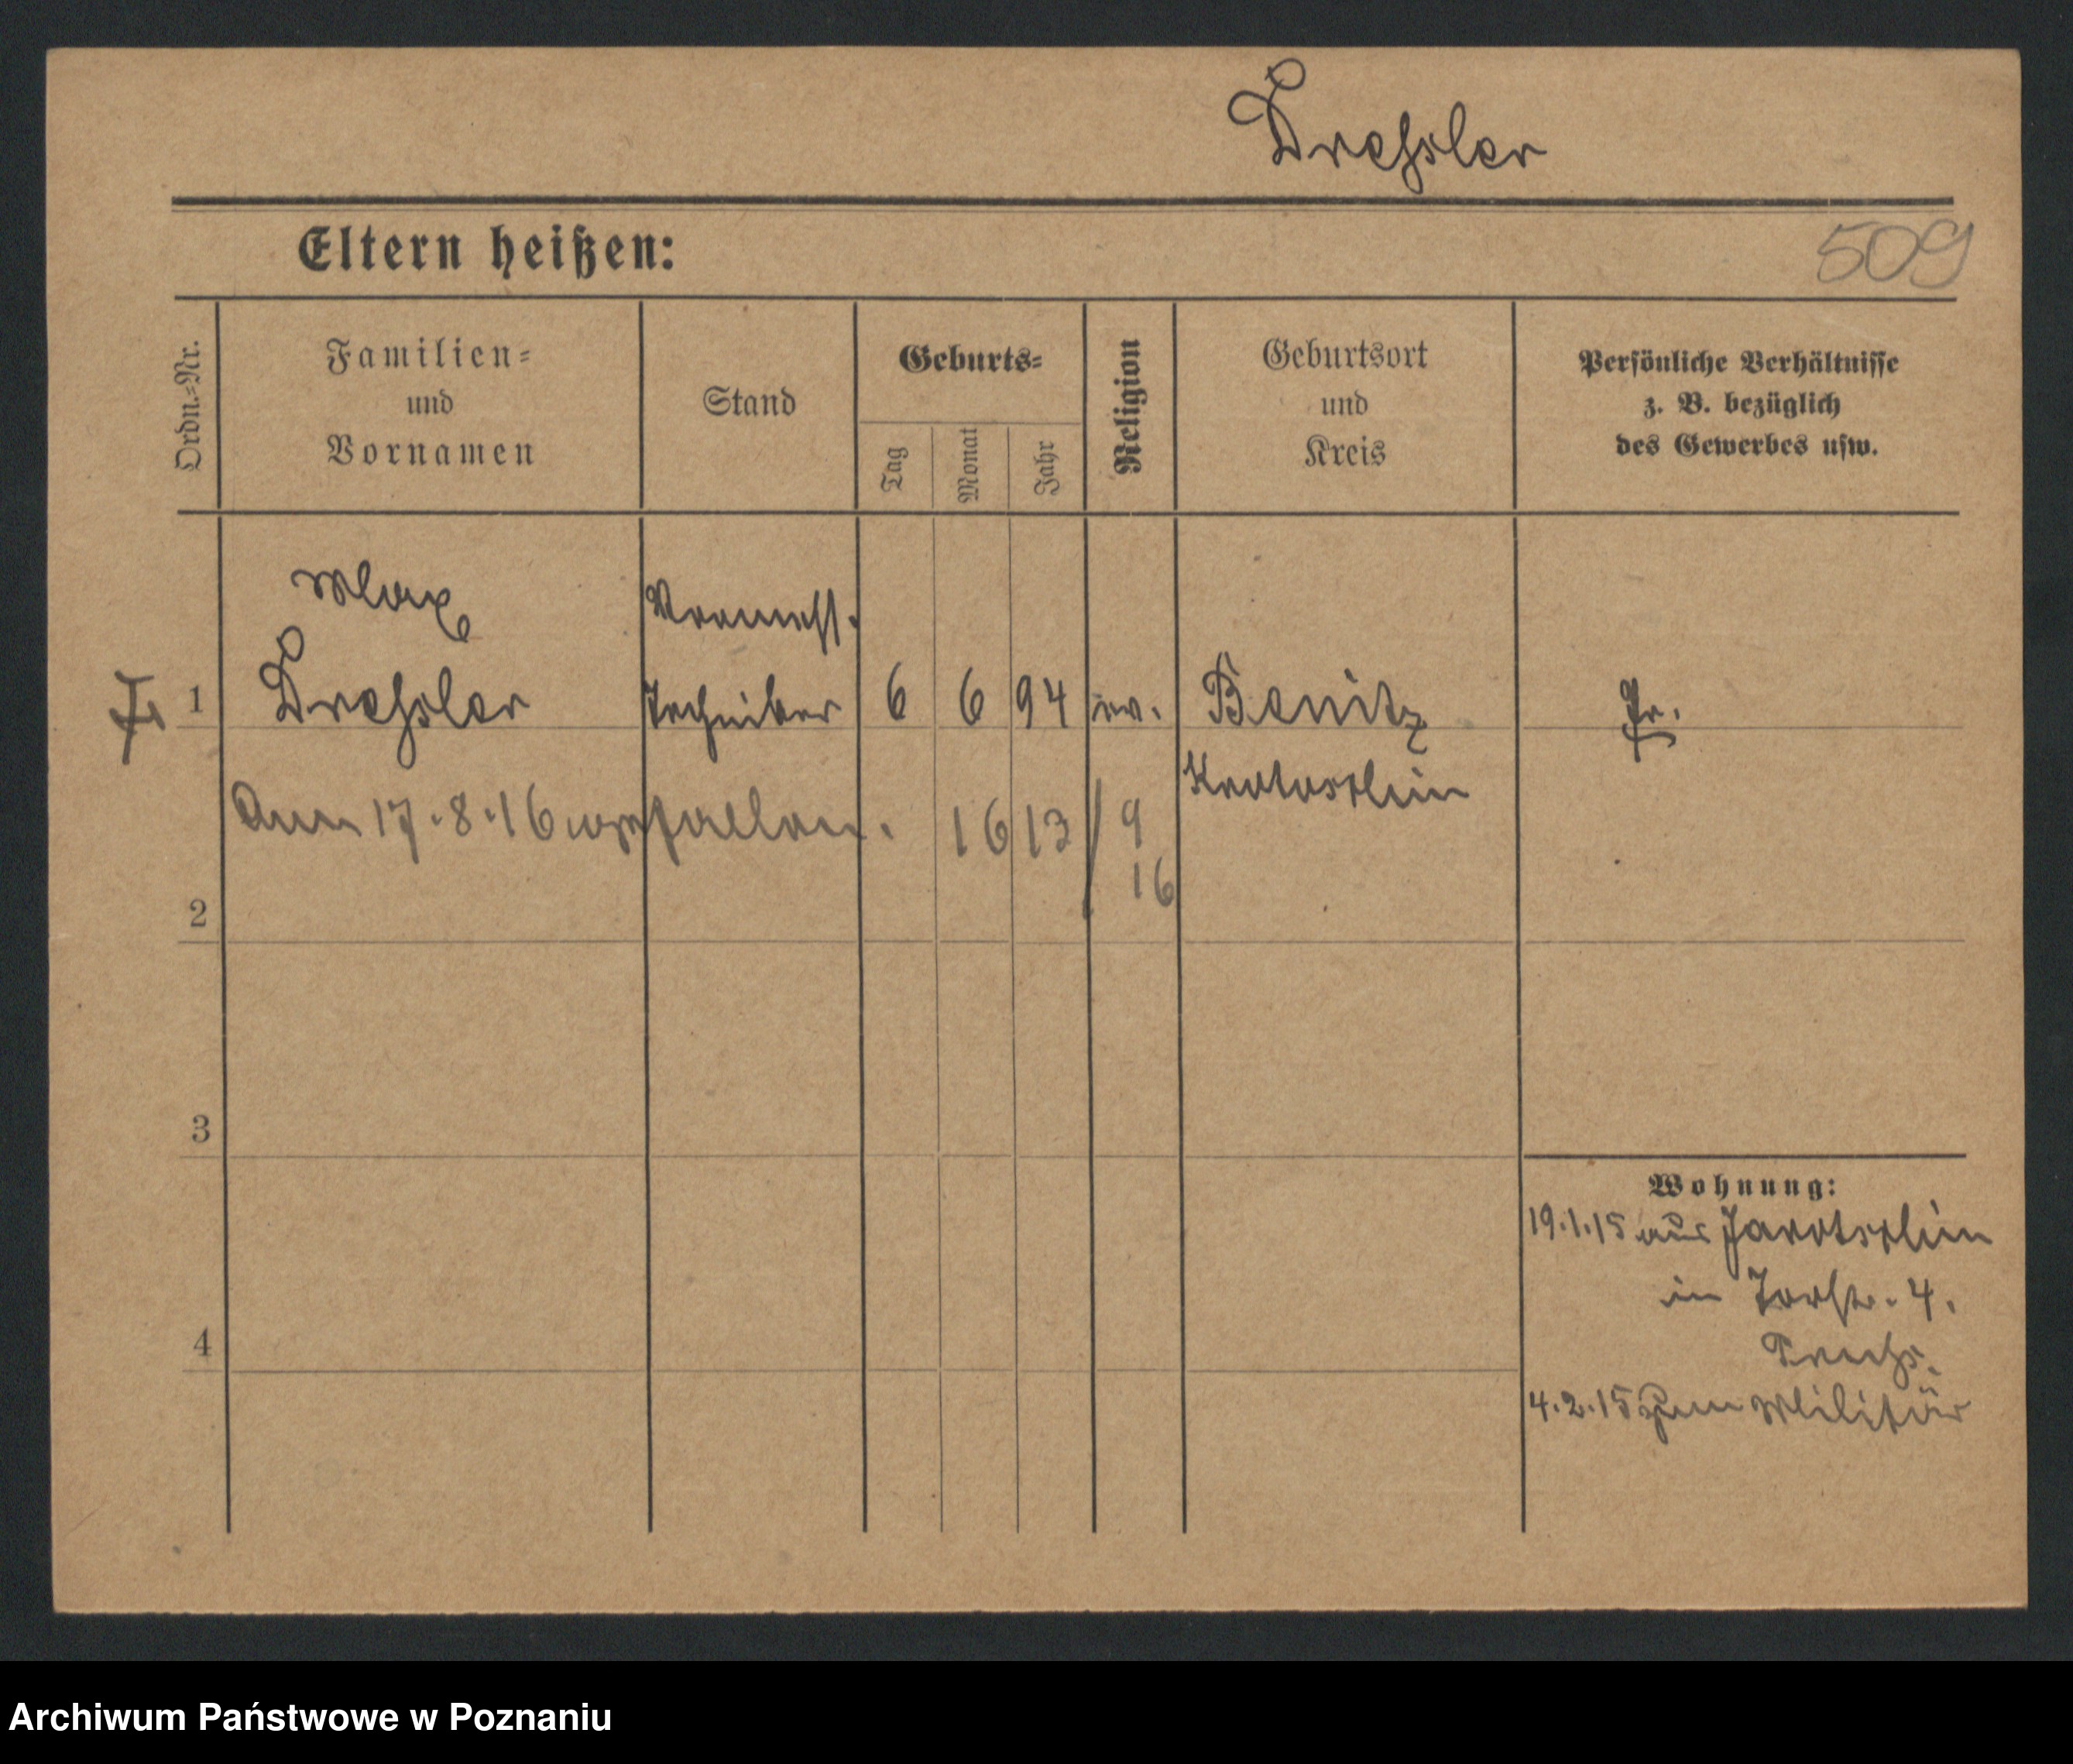 Dressler
Eltern heißen:
509
Ordn.-Nr.
Familien- und Vornamen
Stand
Geburts-
Tag
Monat
Jahr
Religion
Geburtsort und Kreis
Persönliche Verhältnisse
z. B. bezüglich
des Gewerbes usw.
Max
Vermess.
1 Dressler Techniker 6 6 94 ev. Benitz Pr.
Krotoschin
Am 17.8.16 gefallen. 16 13/9
16
2
3
Wohnung:
19.1.15 aus Jarotschin
in Torstr. 4.
4
4.2.15 zum Militär
Archiwum Państwowe w Poznaniu